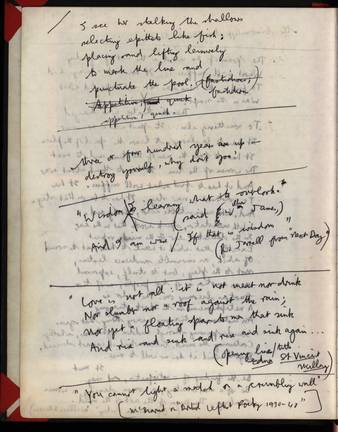 I see her stalking the shallows
selecting epithets like fish;
placing and lifting leisurely
to mark the line and
punctuate the pool. (fastidious,)
Appetitive, quick
appetitive, quick.
three or four hundred years are up –
destroy yourself, why don't you!
"Wisdom is learning what to overlook"
(said James,)
And I am wise / If that is wisdom"
(from "Next Day")
"Love is not all: it is not meat nor drink
Nor slumber nor a roof against the rain;
Nor yet a floating spar to men that sink
And rise and sink and rise and sink again ...
(opening lines/title
Edna St Vincent
Millay)
"You cannot light a match on a crumbling wall"